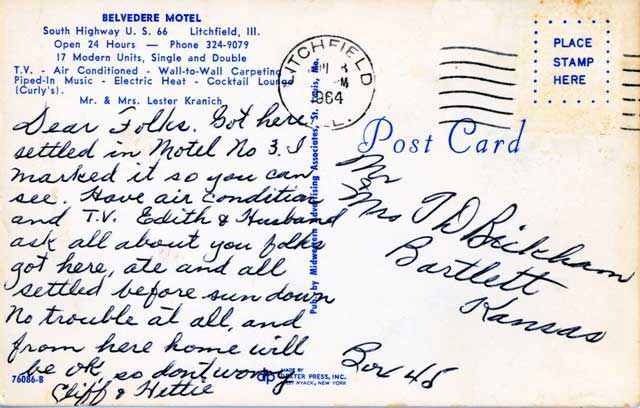 BELVEDERE MOTEL
South Highway U. S. 66 Litchfield, Ill.
Open 24 Hours — Phone 324-9079
17 Modern Units, Single and Double
T.V. - Air Conditioned - Wall-to-Wall Carpeting
Piped-In Music - Electric Heat - Cocktail Lounge
(Curly's).
Mr. & Mrs. Lester Kranich
Dear Folks. Got here,
settled in Motel No 3. I
marked it so you can
see. Have air condition
and T.V. Edith & Husband
ask all about you folks
got here, ate and all
settled before sun down
No trouble at all, and
from here home will
be ok, so dont worry
Cliff & Hettie
76086-B
Pub. by Midwestern Advertising Associates, St. Louis, Mo.
MADE BY
dp DEXTER PRESS, INC.
WEST NYACK, NEW YORK
LITCHFIELD
PM
1964
ILL.
PLACE
STAMP
HERE
Post Card
Mr
&
Mrs T D Brickham
Bartlett
Kansas
Box 48